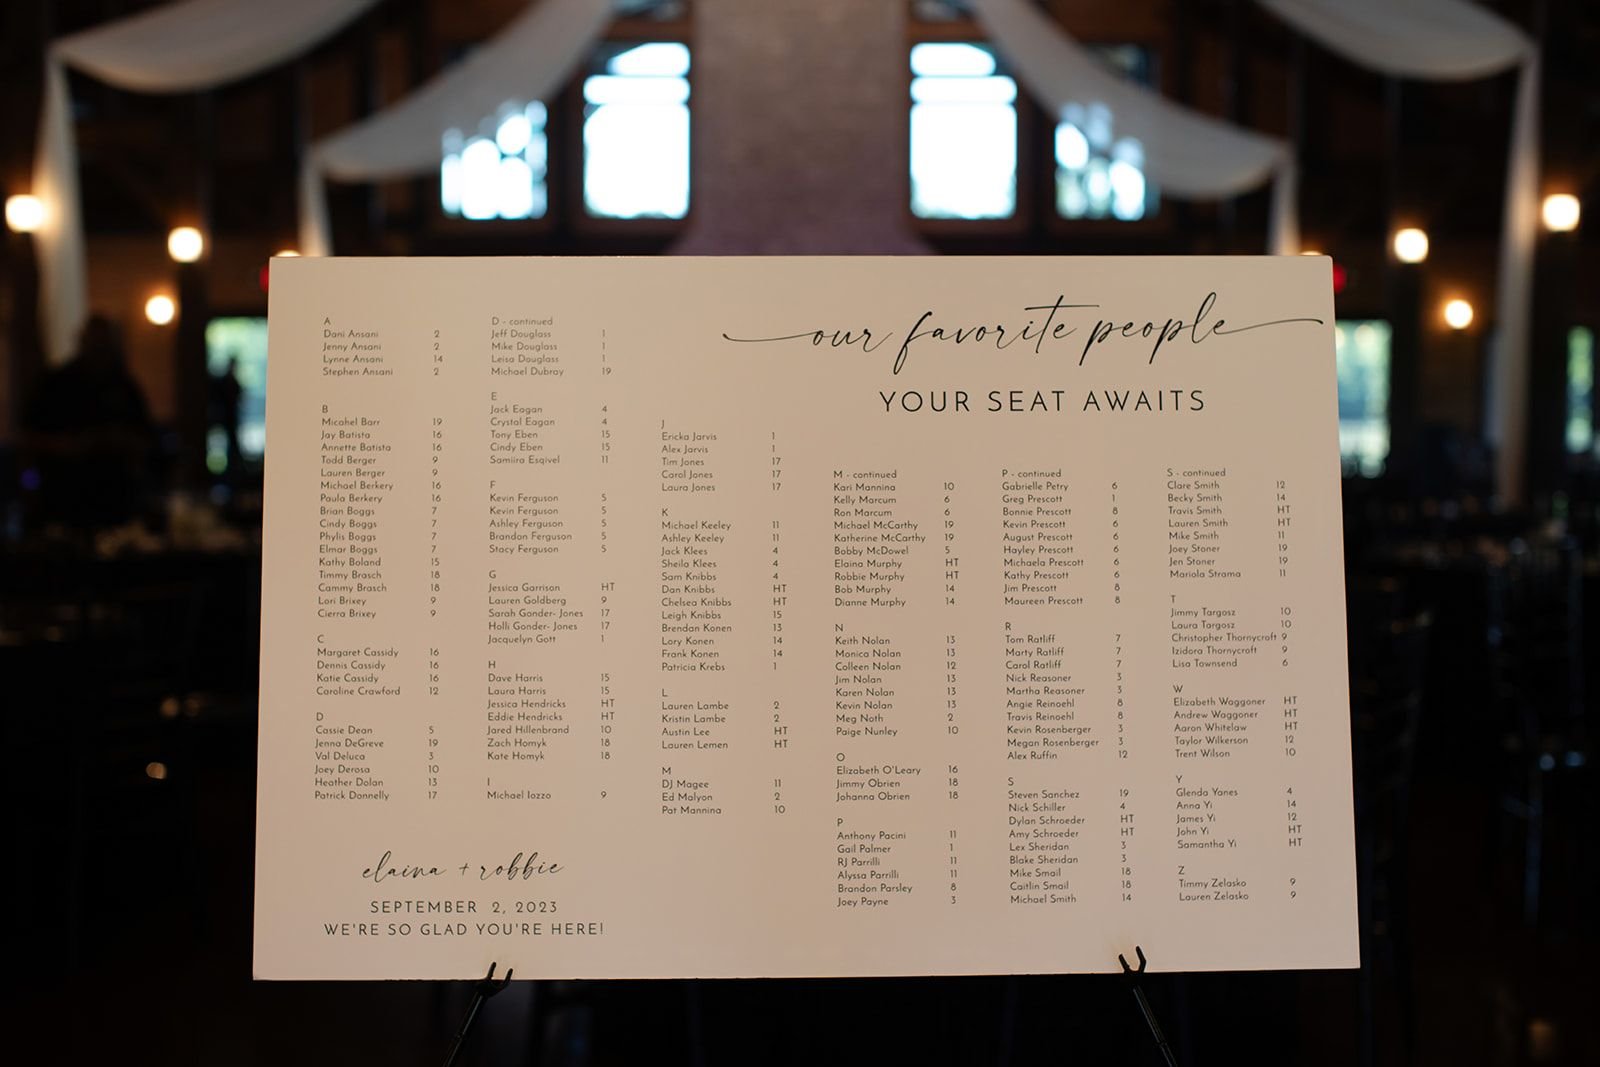 our favorite people
YOUR SEAT AWAITS
A
Dani Ansani 2
Jenny Ansani 2
Lynne Ansani 14
Stephen Ansani 2
B
Micahel Barr 19
Jay Batista 16
Annette Batista 16
Todd Berger 9
Lauren Berger 9
Michael Berkery 16
Paula Berkery 16
Brian Boggs 7
Cindy Boggs 7
Phylis Boggs 7
Elmar Boggs 7
Kathy Boland 15
Timmy Brasch 18
Cammy Brasch 18
Lori Brixey 9
Cierra Brixey 9
C
Margaret Cassidy 16
Dennis Cassidy 16
Katie Cassidy 16
Caroline Crawford 12
D
Cassie Dean 5
Jenna DeGreve 19
Val Deluca 3
Joey Derosa 10
Heather Dolan 13
Patrick Donnelly 17
D - continued
Jeff Douglass 1
Mike Douglass 1
Leisa Douglass 1
Michael Dubray 19
E
Jack Eagan 4
Crystal Eagan 4
Tony Eben 15
Cindy Eben 15
Samiira Esqivel 11
F
Kevin Ferguson 5
Kevin Ferguson 5
Ashley Ferguson 5
Brandan Ferguson 5
Stacy Ferguson 5
G
Jessica Garrison HT
Lauren Goldberg 9
Sarah Gonder- Jones 17
Holli Gonder- Jones 17
Jacquelyn Gott 1
H
Dave Harris 15
Laura Harris 15
Jessica Hendricks HT
Eddie Hendricks HT
Jared Hillenbrand 10
Zach Homyk 18
Kate Homyk 18
I
Michael Iozzo 9
J
Ericka Jarvis 1
Alex Jarvis 1
Tim Jones 17
Carol Jones 17
Laura Jones 17
K
Michael Keeley 11
Ashley Keeley 11
Jack Klees 4
Sheila Klees 4
Sam Knibbs 4
Dan Knibbs HT
Chelsea Knibbs HT
Leigh Knibbs 15
Brendan Konen 13
Lory Konen 14
Frank Konen 14
Patricia Krebs 1
L
Lauren Lambe 2
Kristin Lambe 2
Austin Lee HT
Lauren Lemen HT
M
DJ Magee 11
Ed Malyon 2
Pat Mannina 10
M - continued
Kari Mannina 10
Kelly Marcum 6
Ron Marcum 6
Michael McCarthy 19
Katherine McCarthy 19
Bobby McDowel 5
Elaina Murphy HT
Robbie Murphy HT
Bob Murphy 14
Dianne Murphy 14
N
Keith Nolan 13
Monica Nolan 13
Colleen Nolan 12
Jim Nolan 13
Karen Nolan 13
Kevin Nolan 13
Meg Noth 2
Paige Nunley 10
O
Elizabeth O'Leary 16
Jimmy Obrien 18
Johanna Obrien 18
P
Anthony Pacini 11
Gail Palmer 1
RJ Parrilli 11
Alyssa Parrilli 11
Brandon Parsley 8
Joey Payne 3
P - continued
Gabrielle Petry 6
Greg Prescott 1
Bonnie Prescott 8
Kevin Prescott 6
August Prescott 6
Hayley Prescott 6
Michaela Prescott 6
Kathy Prescott 6
Jim Prescott 8
Maureen Prescott 8
R
Tom Ratliff 7
Marty Ratliff 7
Carol Ratliff 7
Nick Reasoner 3
Martha Reasoner 3
Angie Reinoehl 8
Travis Reinoehl 8
Kevin Rosenberger 3
Megan Rosenberger 3
Alex Ruffin 12
S
Steven Sanchez 19
Nick Schiller 4
Dylan Schroeder HT
Amy Schroeder HT
Lex Sheridan 3
Blake Sheridan 3
Mike Smail 18
Caitlin Smail 18
Michael Smith 14
S - continued
Clare Smith 12
Becky Smith 14
Travis Smith HT
Lauren Smith HT
Mike Smith 11
Joey Stoner 19
Jen Stoner 19
Mariola Strama 11
T
Jimmy Targosz 10
Laura Targosz 10
Christopher Thornycroft 9
Izidora Thornycroft 9
Lisa Townsend 6
W
Elizabeth Waggoner HT
Andrew Waggoner HT
Aaron Whitelaw HT
Taylor Wilkerson 12
Trent Wilson 10
Y
Glenda Yanes 4
Anna Yi 14
James Yi 12
John Yi HT
Samantha Yi HT
Z
Timmy Zelasko 9
Lauren Zelasko 9
elaina + robbie
SEPTEMBER 2, 2023
WE'RE SO GLAD YOU'RE HERE!